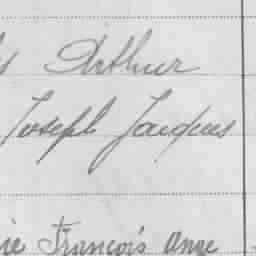 Arthur
Joseph Jacques
François Ange